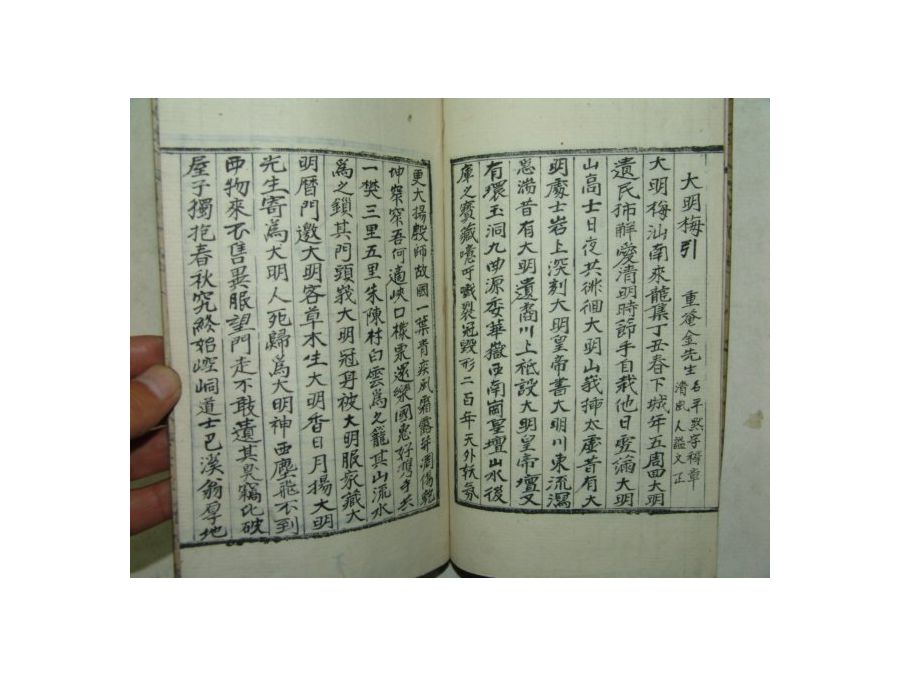 大明梅引 重菴金先生 名平默字穉章 清風人謚文正
大明梅汕南來龍集丁丑春下城年五周回大明
遺民 愛清明時節手自栽他日 滿大明
山高士日夜共徘徊大明山峩揷太虛昔有大
明處士岩上深刻大明皇帝書大明川東流瀉
悲湍昔有大明遺裔川上祗設大明皇帝壇又
有環玉洞九曲源委華嶽西南崗聖壇山水後
庫之寶藏噫吁 裂冠毁形二百年天外妖氛
更大揚 師故國一葉青疾風霜露幷凋傷乾
坤窄窄吾何適峽口 好 共
一樊三里五里朱陳村白雲爲之籠其山流水
爲之鎖其門頭峩大明冠身被大明服家藏大
明曆門邀大明客草木生大明香日月揚大明
先生寄爲大明人死歸爲大明神西塵飛不到
西物來不售異服望門走不敢遺其臭竊比破
屋子獨抱春秋究終始崆峒道士巴溪翁厚地